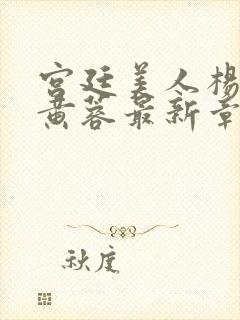 宫廷美人杨
黄蓉最新章
秋度